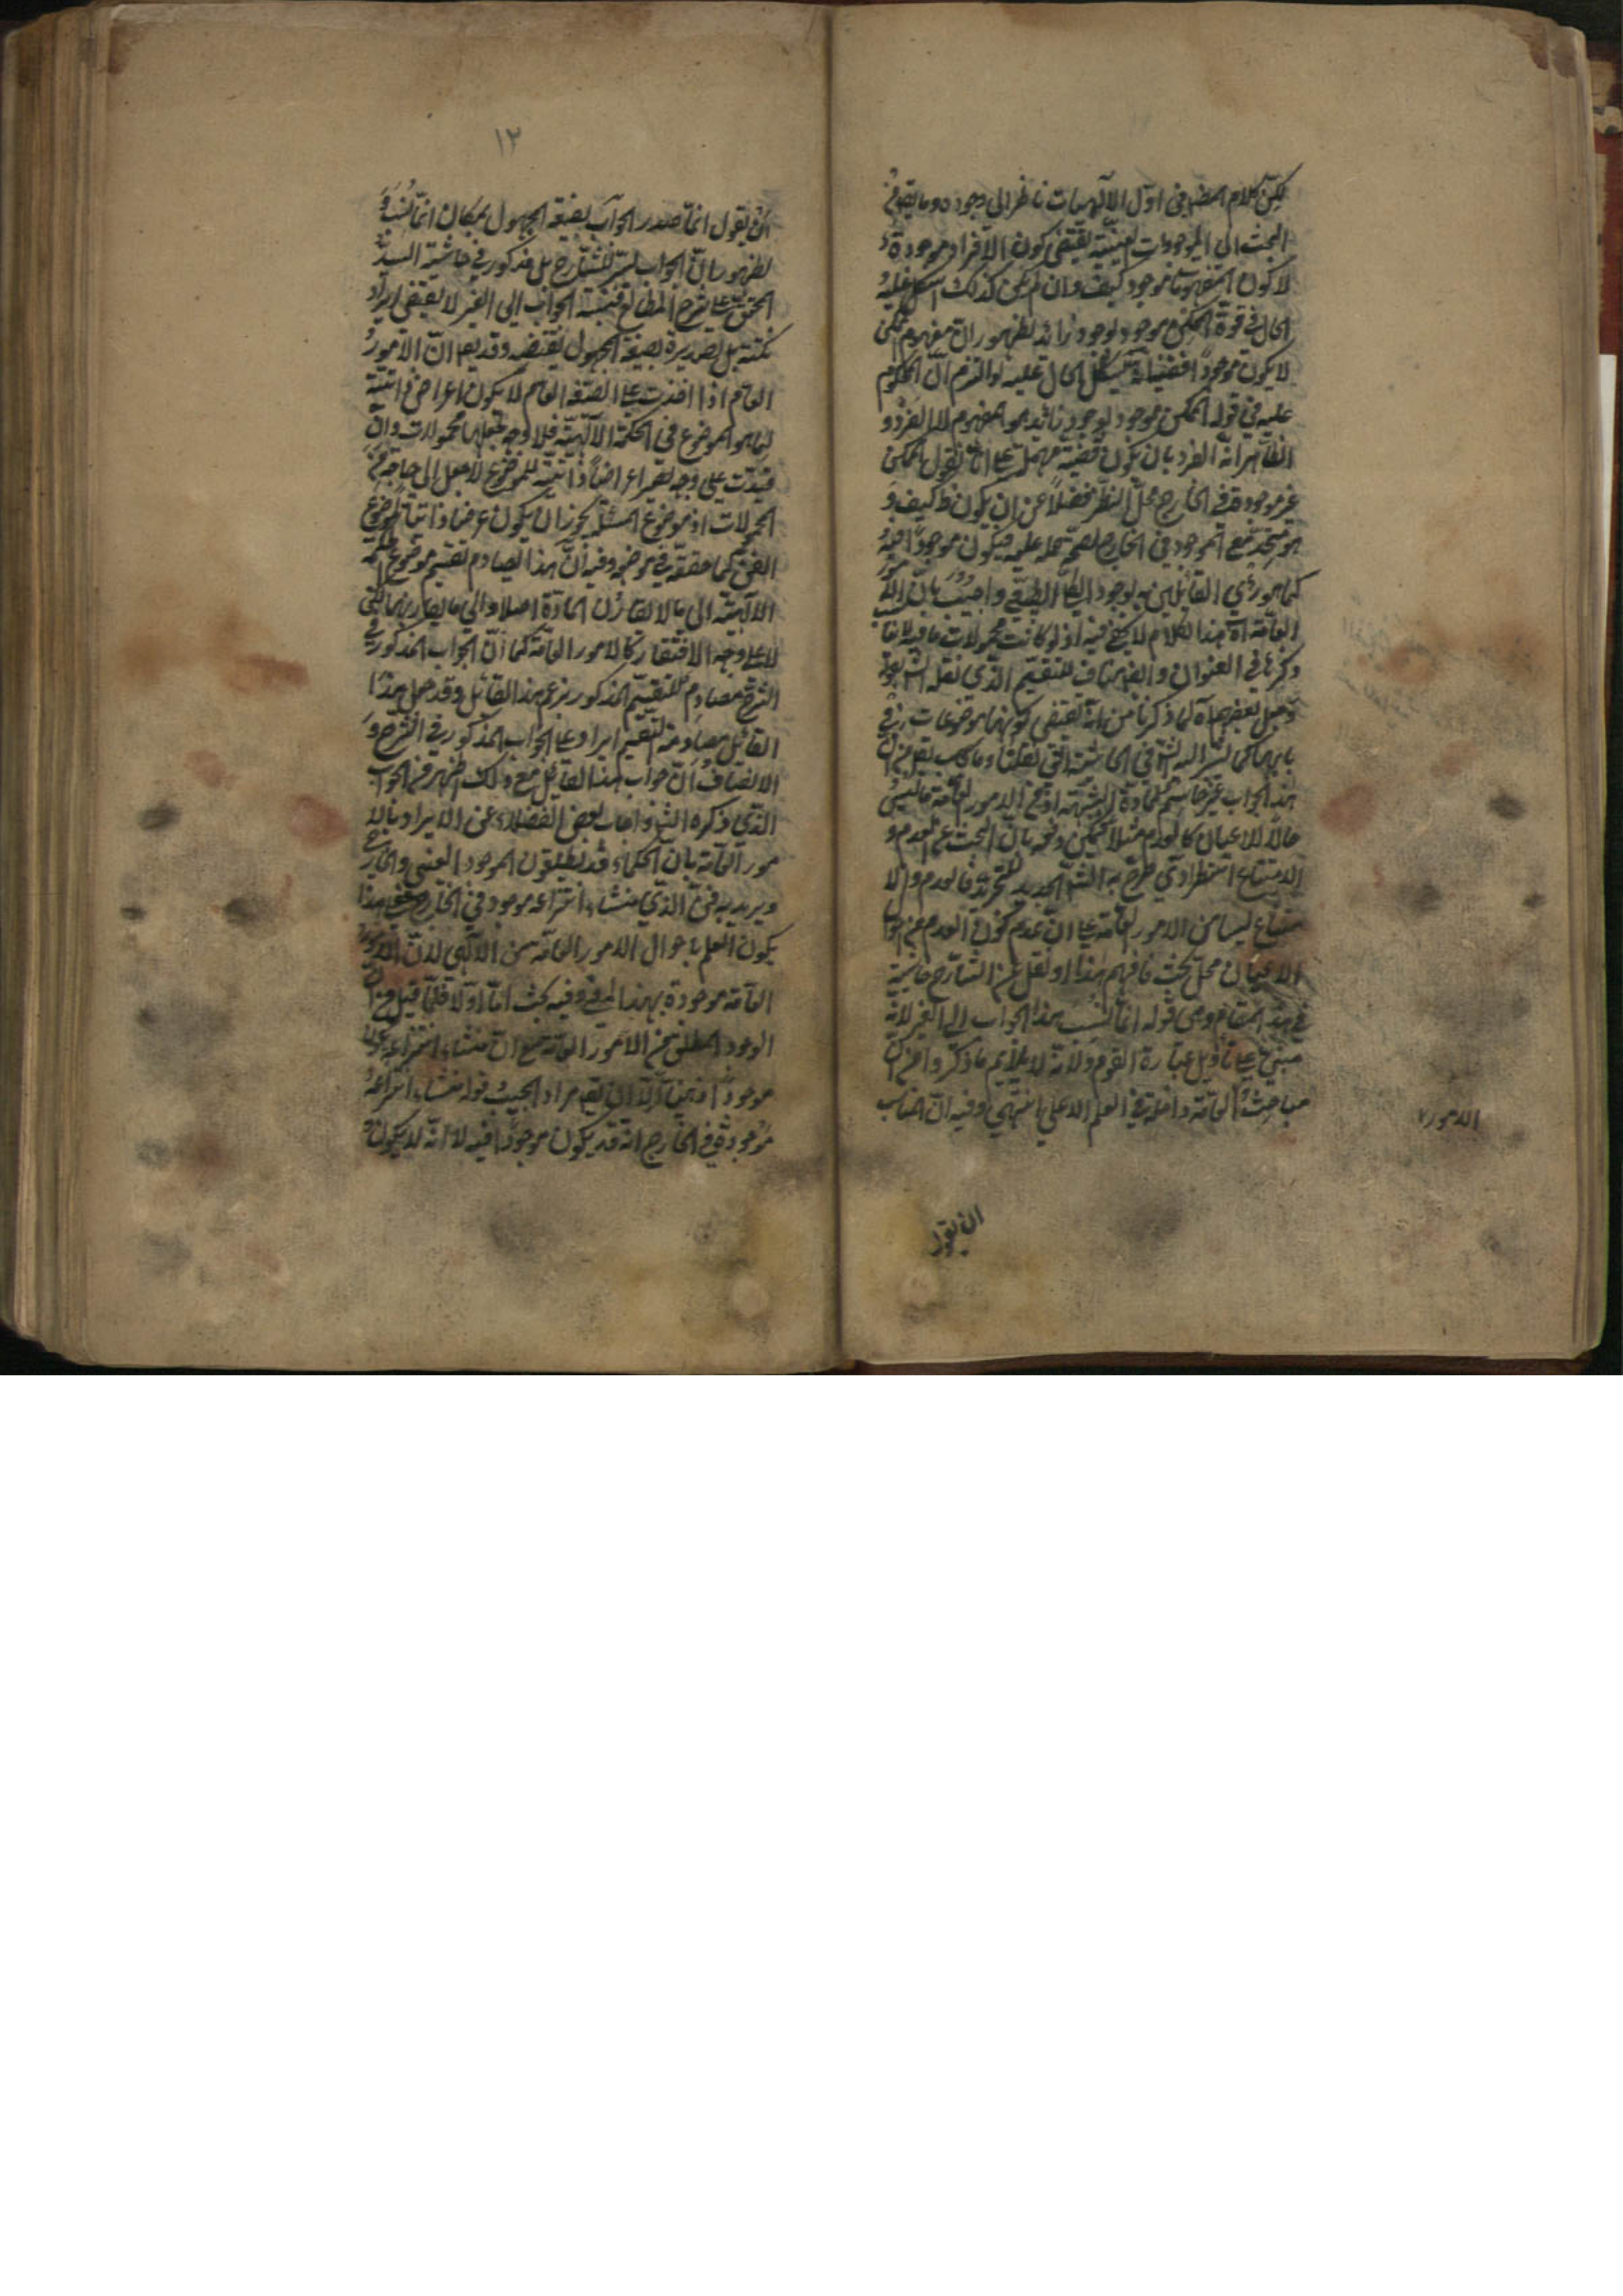 لكن كلام المصنف في اول الالهيات ناظر الى وجوده وما يقع في
البحث الى الموجودات العينية يقتضى كون الافراد موجودة
لا كون المفهومات موجودة كيف وان لم يكن كذلك اشكل عليه
الحال في قوة الممكن موجود لوجود زائد لظهور ان مفهوم الممكن
لا يكون موجودا فيشكل الحال عليه لو التزم ان المحكوم
عليه في قوله الممكن موجود لوجود زائد هو المفهوم لا الفرد و
الظاهر انه الفرد بان يكون قضية مهملة على انا نقول الممكن
غير موجودة في الخارج محل النظر فضلا عن ان يكون كيف و
هو متحد مع الموجود في الخارج لصحة حمله عليه فيكون موجودا فيه
كما هو رأي القائلين بوجود الكلي الطبيعي واجيب بان الامور
العامة آه هذا الكلام لا يخ فيه اذ لو كانت محمولات
ذكرها في العنوان وايضا مناف للتقسيم الذي نقله
بعضهم لما ذكرنا من انه يقتضى كونها موضوعات في
بابها كما اشار اليه في الحاشية
هذا الجواب غير حاسم لمادة الشبهة اذ في الامور العامة ما ليس
حالا للاعيان كالعدم مثلا بان البحث عن العدم و
الامتناع استطرادي صرح به الشارح الجديد للتجريد فالعدم والا
متناع ليسا من الامور العامة على ان عدم كون العدم من احوال
الاعيان محل بحث فافهم هذا ونقل عن الشارح حاشية
في هذا المقام وهي قوله انما نسب هذا الجواب الى الغير لانه
مبني على تأويل عبارة القوم ولانه لا يلايم ما ذكروا من ان
مباحث العامة داخلة في العلم الاعلى انتهى وفيه ان المناسب
الامور
ان يقول
١٢
ان يقول انما صدر الجواب بصيغة المجهول بمكان انما نسب و
لظهور ان الجواب ليس للشارح بل مذكور في حاشية السيد
المحقق على شرح المطالع فنسبة الجواب الى الغير لا يقتضى ايراد
نكتة بل تصديره بصيغة المجهول يقتضيه وقد يقع ان الامور
العامة اذا اخذت على الصفة العام لا يكون اعراضا ذاتية
لما هو الموضوع في الحكمة الالهية فلا وجه لجعلها محمولات وان
قيدت على وجه تصير اعراضا ذاتية للموضوع لا يصل الى حاجة في
المحمولات اذ موضوع المسئلة يجوز ان يكون عرضا ذاتيا لموضوع
الفن كما حققه في موضعه وفيه ان هذا يصادم تقسيم موضوع الحكمة
الالهية الى ما لا يقارن المادة اصلا والى ما يقارنها لكن
لا على وجه الافتقار كالامور العامة كما ان الجواب المذكور في
الشرح مصادم للتقسيم المذكور بزعم هذا القائل وقد جعل هذا
القائل مصادمة التقسيم ايرادا على الجواب المذكور في الشرح و
الانصاف ان جواب هذا القائل مع ذلك اظهر من الجواب
الذي ذكره الشارح واجاب بعض الفضلاء عن الايراد بالا
مور العامة بان الحكماء قد يطلقون الموجود العيني والخارجي
ويريد به الذي منشاء انتزاعه موجود في الخارج فعلى هذا
يكون العلم باحوال الامور العامة من الالهى لان الامور
العامة موجودة بهذا المعنى وفيه بحث اما اولا فلما قيل من ان
الوجود المطلق من الامور العامة مع ان منشاء انتزاعه يكون
موجودا ذهنيا الا ان يقع مراد المجيب بقوله منشاء انتزاعه
موجود في الخارج انه قد يكون موجودا فيه لا انه لا يكون